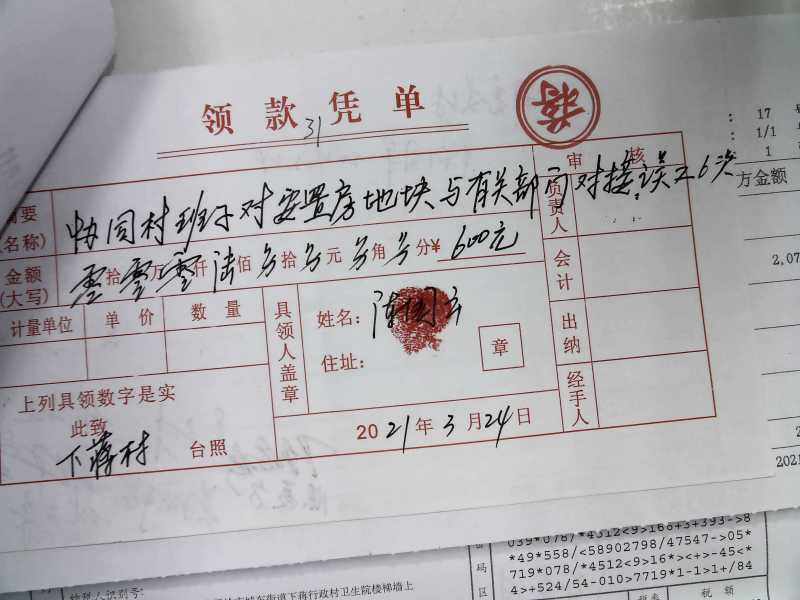 领款凭单
31
蒋
审核
摘要(名称) 协同村班子对安置房地块与有关部门对接误工6次
负责人
金额(大写) 零拾零万零仟陆佰零拾零元零角零分¥ 600元
会计
计量单位 单价 数量
具领人盖章
姓名: 陈
住址:
章
出纳
上列具领数字是实
此致
下蒋村 台照
经手人
2021年3月24日
: 17
: 1/1
: 1
方金额
2,07
2021
码区
039*078/*4512<9>168+3+393->8
*49*558/<58902798/47547->05*
719*078/*4512<9>16*><+>-45<*
4>+524/54-010>7719*1-1>1+/84
纳税人识别号:
城东街道下蒋行政村卫生院楼梯墙上
税率 税额